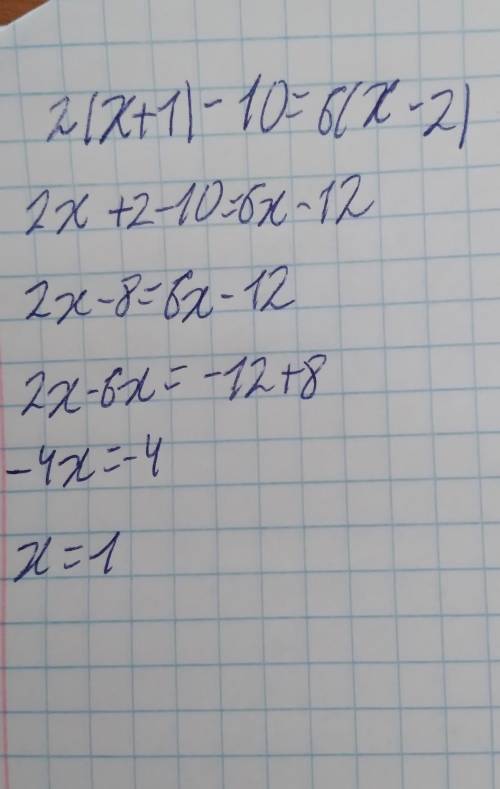 2(x+1)-10=6(x-2)
2x+2-10=6x-12
2x-8=6x-12
2x-6x=-12+8
-4x=-4
x=1